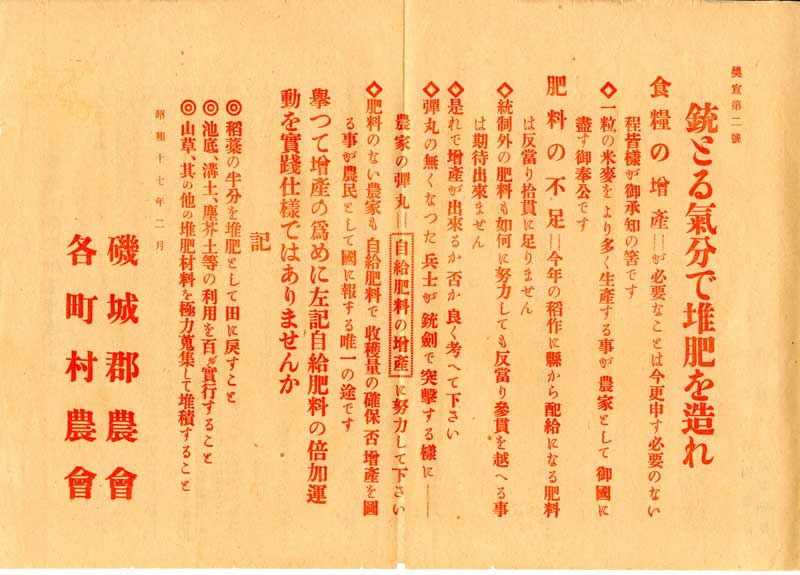 奬宣第二號
銃とる氣分で堆肥を造れ
食糧の增產……が必要なことは今更申す必要のない
程皆樣が御承知の筈です
◇一粒の米麥をより多く生產する事が農家として御國に
盡す御奉公です
肥料の不足……今年の稻作に縣から配給になる肥料
は反當り拾貫に足りません
◇統制外の肥料も如何に努力しても反當り參貫を越へる事
は期待出來ません
◇是れで增產が出來るか否か良く考へて下さい
◇彈丸の無くなつた兵士が銃劍で突擊する樣に……
農家の彈丸……自給肥料の增產に努力して下さい
◇肥料のない農家も自給肥料で收穫量の確保否增產を圖
る事が農民として國に報ずる唯一の途です
擧つて增產の爲めに左記自給肥料の倍加運
動を實踐仕樣ではありませんか
記
◎稻藁の半分を堆肥として田に戾すこと
◎池底、溝土、塵芥土等の利用を百%實行すること
◎山草、其の他の堆肥材料を極力蒐集して堆積すること
昭和十七年二月
磯城郡農會
各町村農會